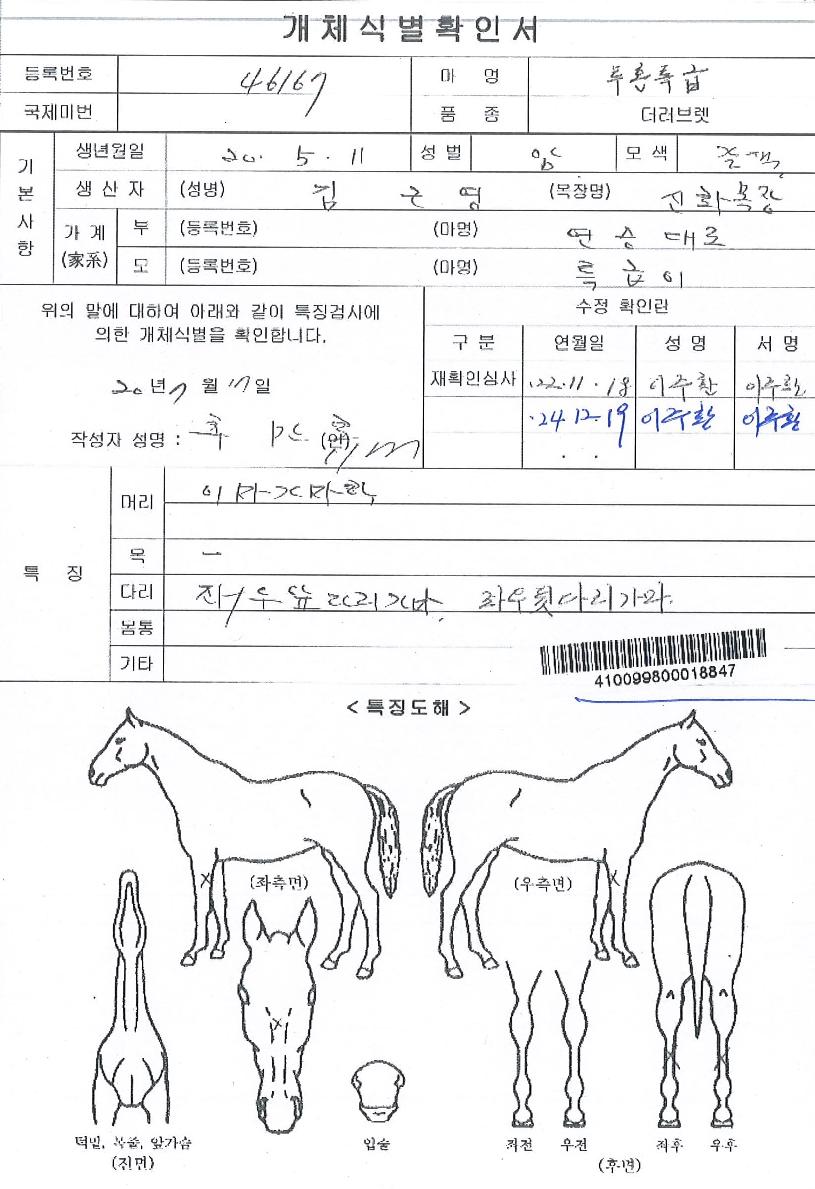 개체식별확인서
등록번호 46167 마 명 투혼특급
국제미번 품 종 더러브렛
기본사항
생년월일 20. 5. 11 성별 암 모색
생산자 (성명) 김 근 영 (목장명) 진화목장
가계 (家系) 부 (등록번호) (마명) 연승대로
모 (등록번호) (마명) 특급이
위의 말에 대하여 아래와 같이 특징검사에
의한 개체식별을 확인합니다.
20년 7월 17일
작성자 성명 : (인)
수정 확인란
구분 연월일 성명 서명
재확인심사 .22.11.18 이주환 이주환
.24.12.19 이주환 이주환
. .
특 징
머리
목 ㅡ
다리 좌우앞다리가마, 좌우뒷다리가마.
몸통
기타
410099800018847
< 특징도해 >
(좌측면) (우측면)
턱밑, 목줄, 앞가슴 입술 좌전 우전 좌후 우후
(전면) (후면)